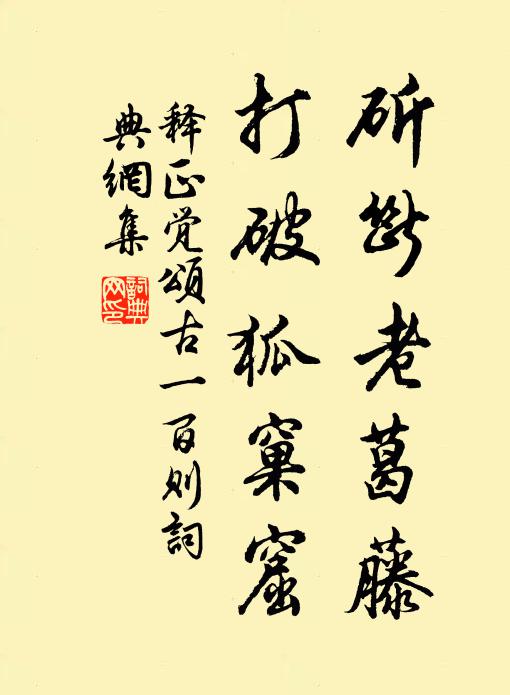 斫断老葛藤
打破狐窠窟
释正觉颂古一百则詞
典網集
詞典网印